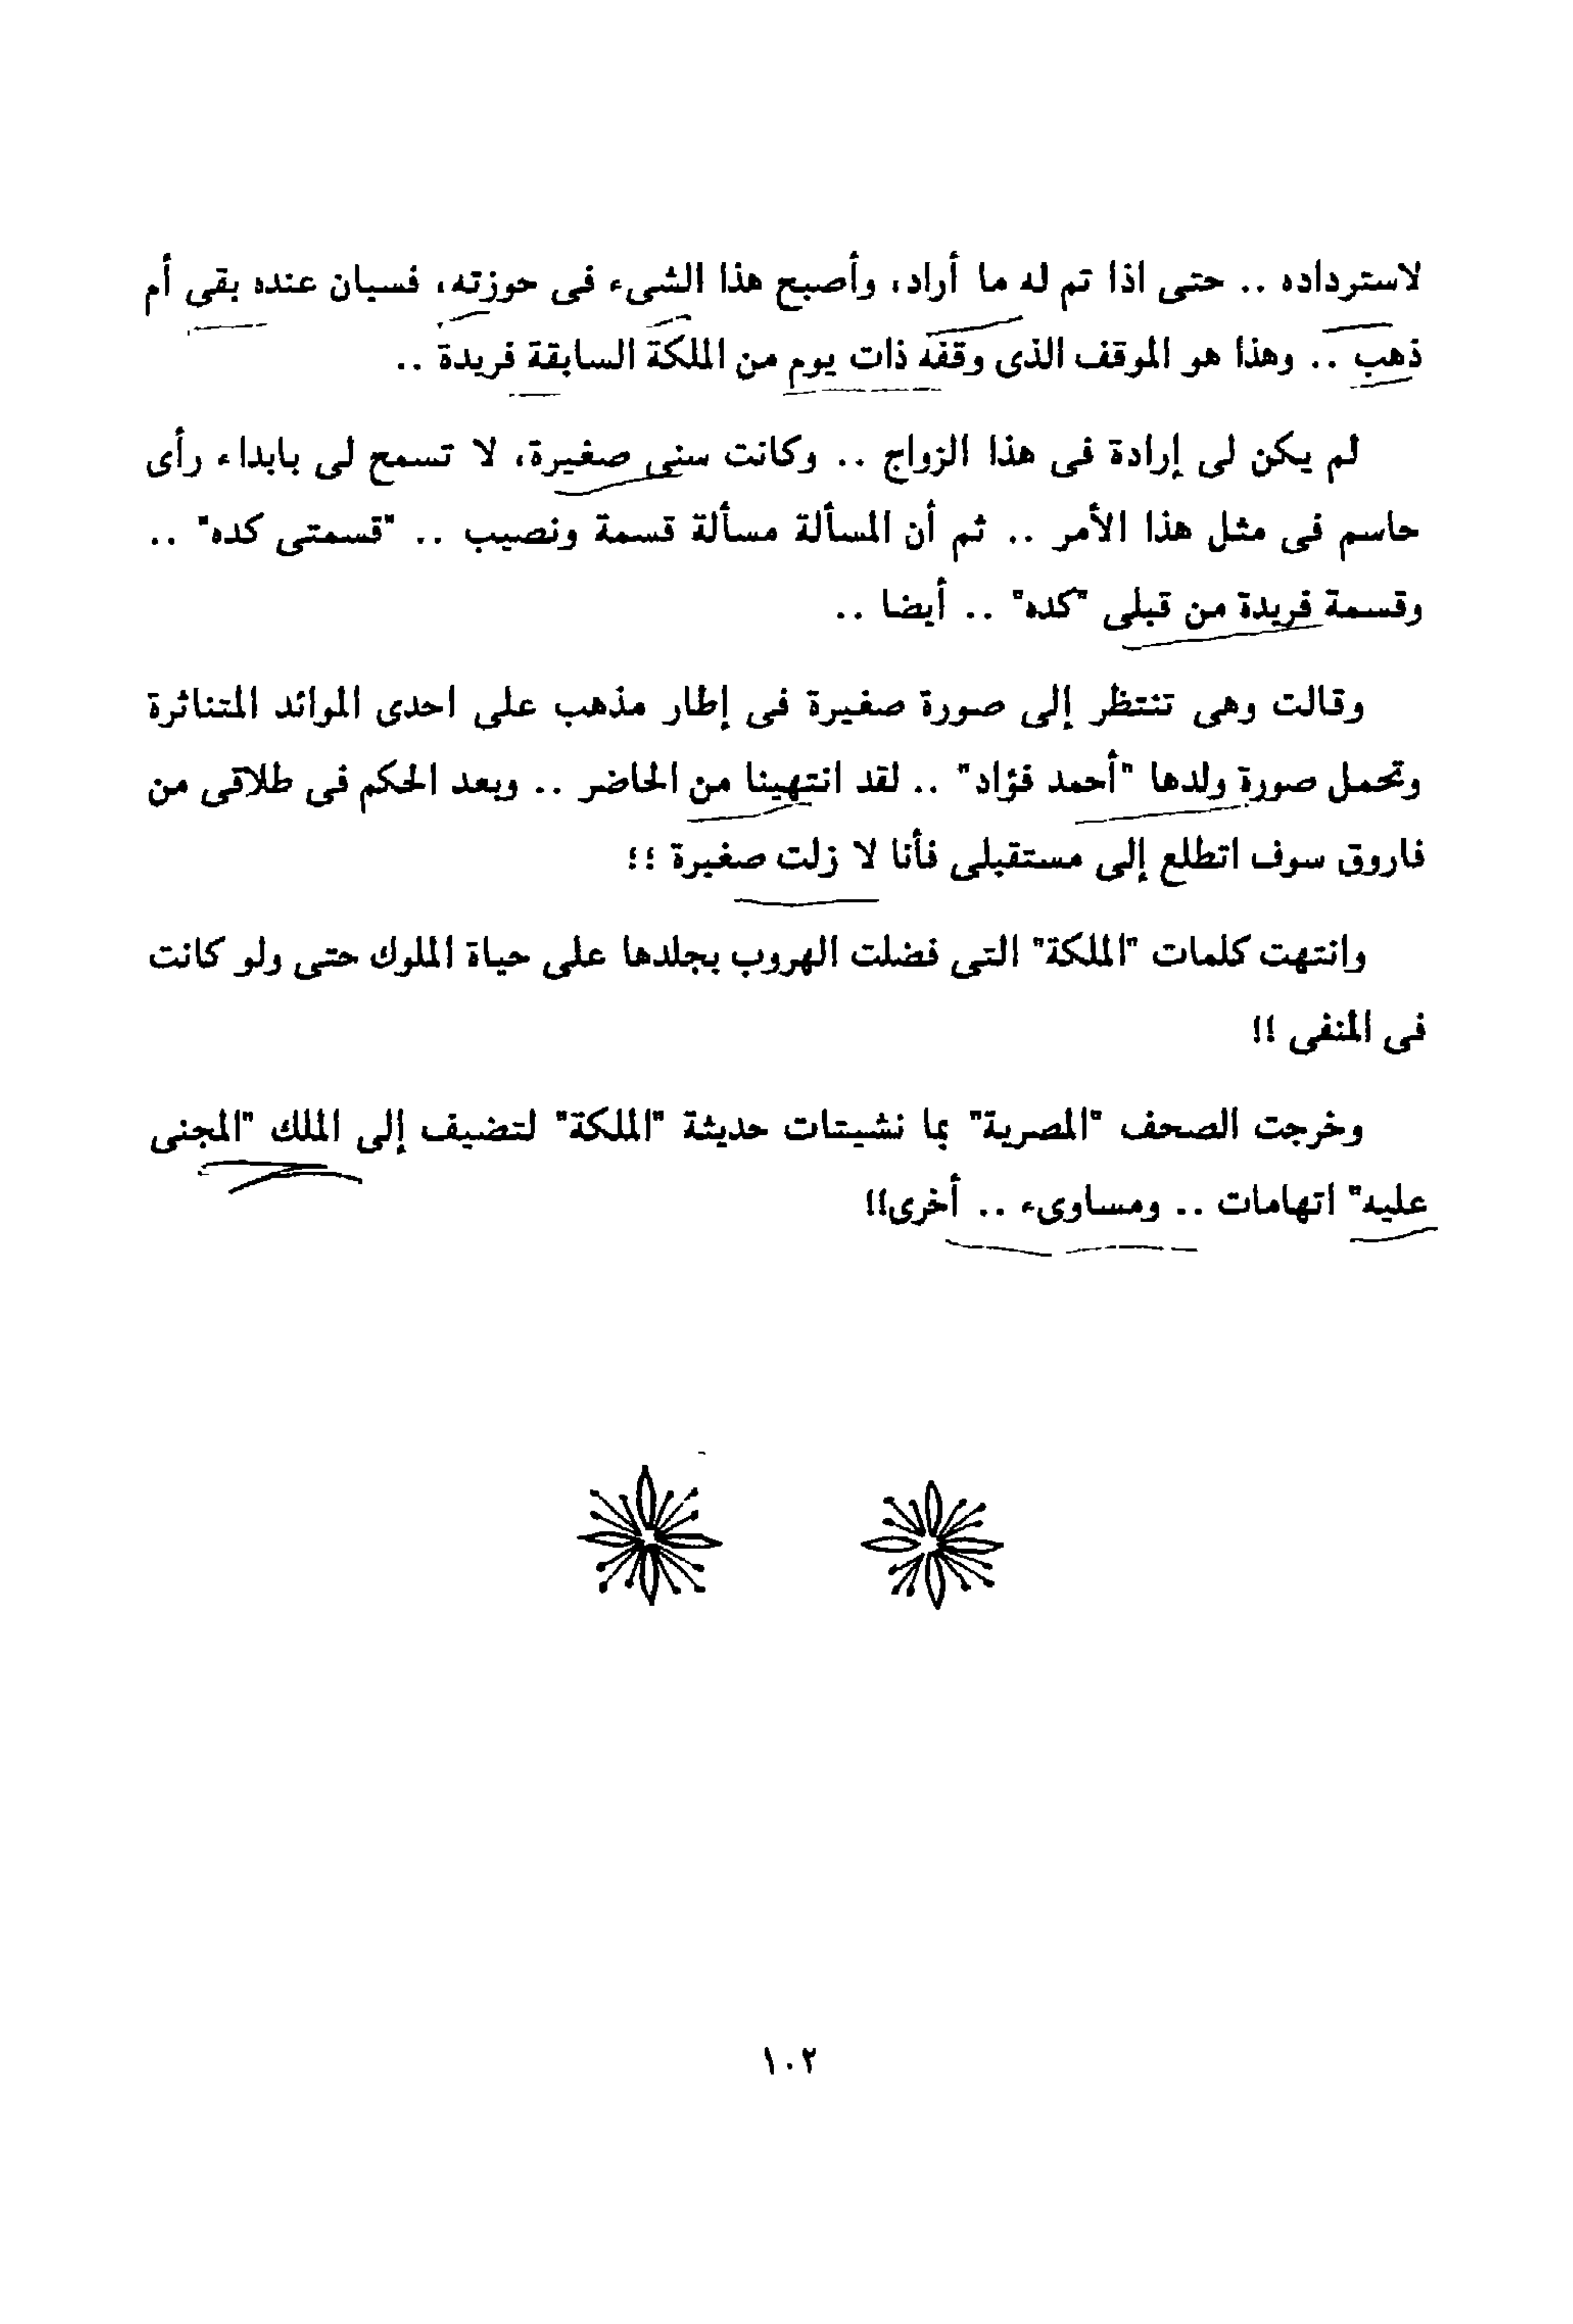 لاسترداده .. حتى اذا تم له ما أراد، وأصبح هذا الشىء فى حوزته، فسيان عنده بقى أم
ذهب .. وهذا هو الموقف الذى وقفه ذات يوم من الملكة السابقة فريدة ..
لم يكن لى إرادة فى هذا الزواج .. وكانت سنى صغيرة، لا تسمح لى بابداء رأى
حاسم فى مثل هذا الأمر .. ثم أن المسألة مسألة قسمة ونصيب .. "قسمتى كده" ..
وقسمة فريدة من قبلى "كده" .. أيضا ..
وقالت وهى تنتظر إلى صورة صغيرة فى إطار مذهب على احدى الموائد المتناثرة
وتحمل صورة ولدها "أحمد فؤاد" .. لقد انتهينا من الحاضر .. وبعد الحكم فى طلاقى من
فاروق سوف اتطلع إلى مستقبلى فأنا لا زلت صغيرة ؛؛
وانتهت كلمات "الملكة" التى فضلت الهروب بجلدها على حياة الملوك حتى ولو كانت
فى المنفى !!
وخرجت الصحف "المصرية" بما نشيتات حديثة "الملكة" لتضيف إلى الملك "المجنى
عليه" اتهامات .. ومساوىء .. أخرى!!
١٠٢